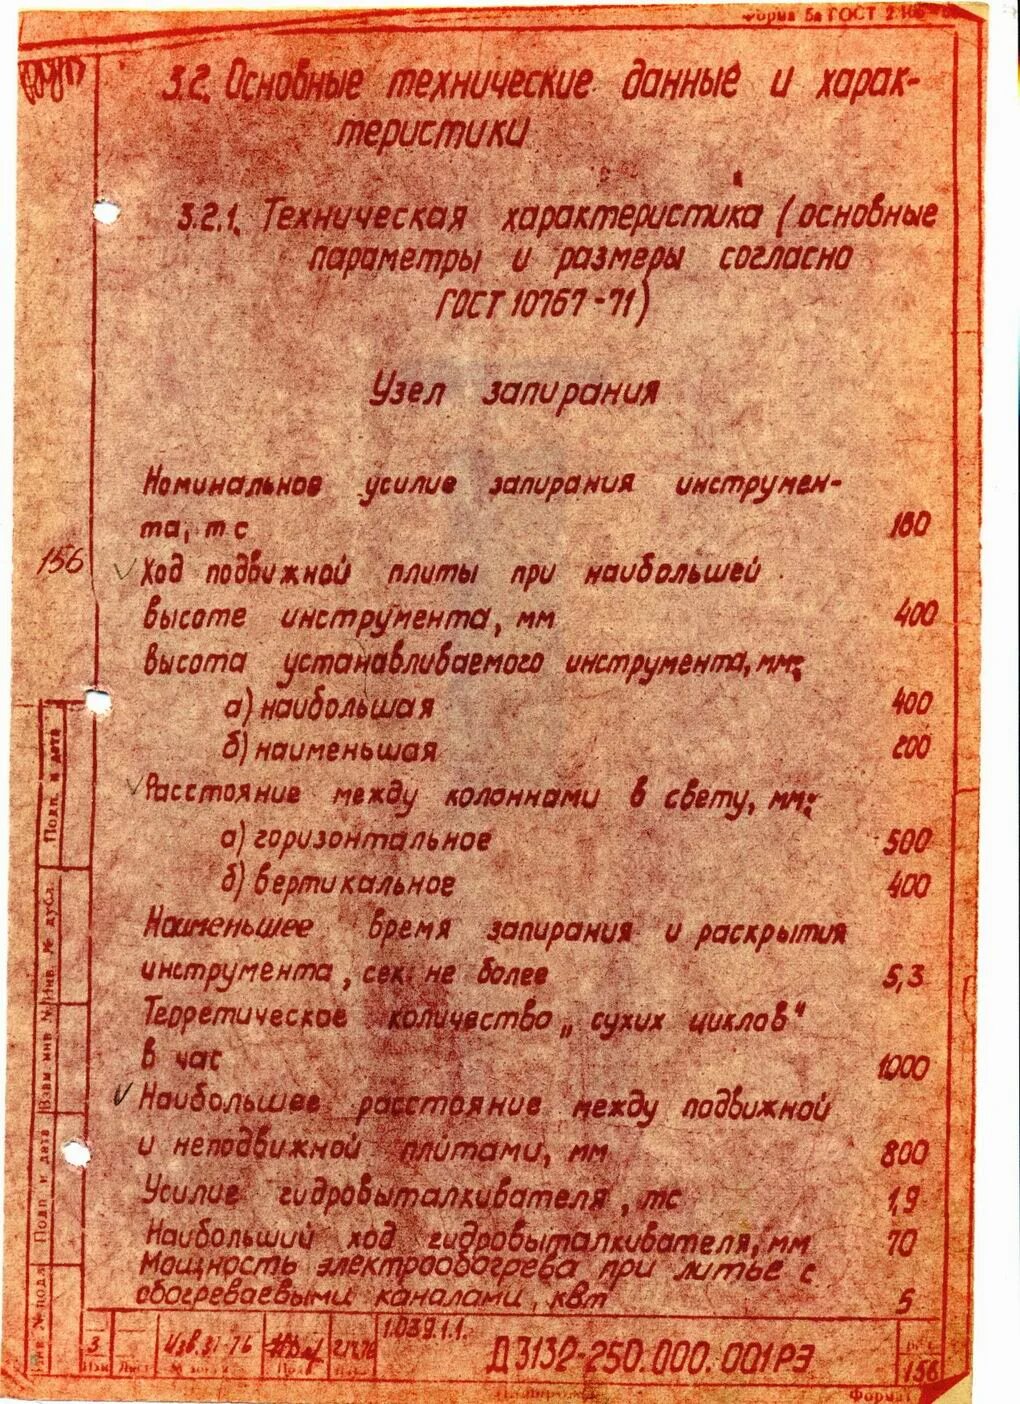 Форма 5а ГОСТ 2.106
3.2. Основные технические данные и харак-
теристики
3.2.1. Техническая характеристика (основные
параметры и размеры согласно
ГОСТ 10767-71)
Узел запирания
Номинальное усилие запирания инструмен-
та, тс 160
156
Ход подвижной плиты при наибольшей
высоте инструмента, мм 400
Высота устанавливаемого инструмента, мм:
а) наибольшая 400
б) наименьшая 200
Расстояние между колоннами в свету, мм:
а) горизонтальное 500
б) вертикальное 400
Наименьшее время запирания и раскрытия
инструмента, сек. не более 5,3
Терретическое количество „сухих циклов"
в час 1000
Наибольшее расстояние между подвижной
и неподвижной плитами, мм 800
Усилие гидровыталкивателя, тс 1,9
Наибольший ход гидровыталкивателя, мм 70
Мощность электрообогрева при литье с
обогреваемыми каналами, квт 5
Подп. и дата
Инв. № дубл.
Взам инв №
Подп. и дата
Инв № подл.
3 Изв. 31-76
1.039.1.1.
Д3132-250.000.001РЭ
156
Изм Лист
Копировал
Формат